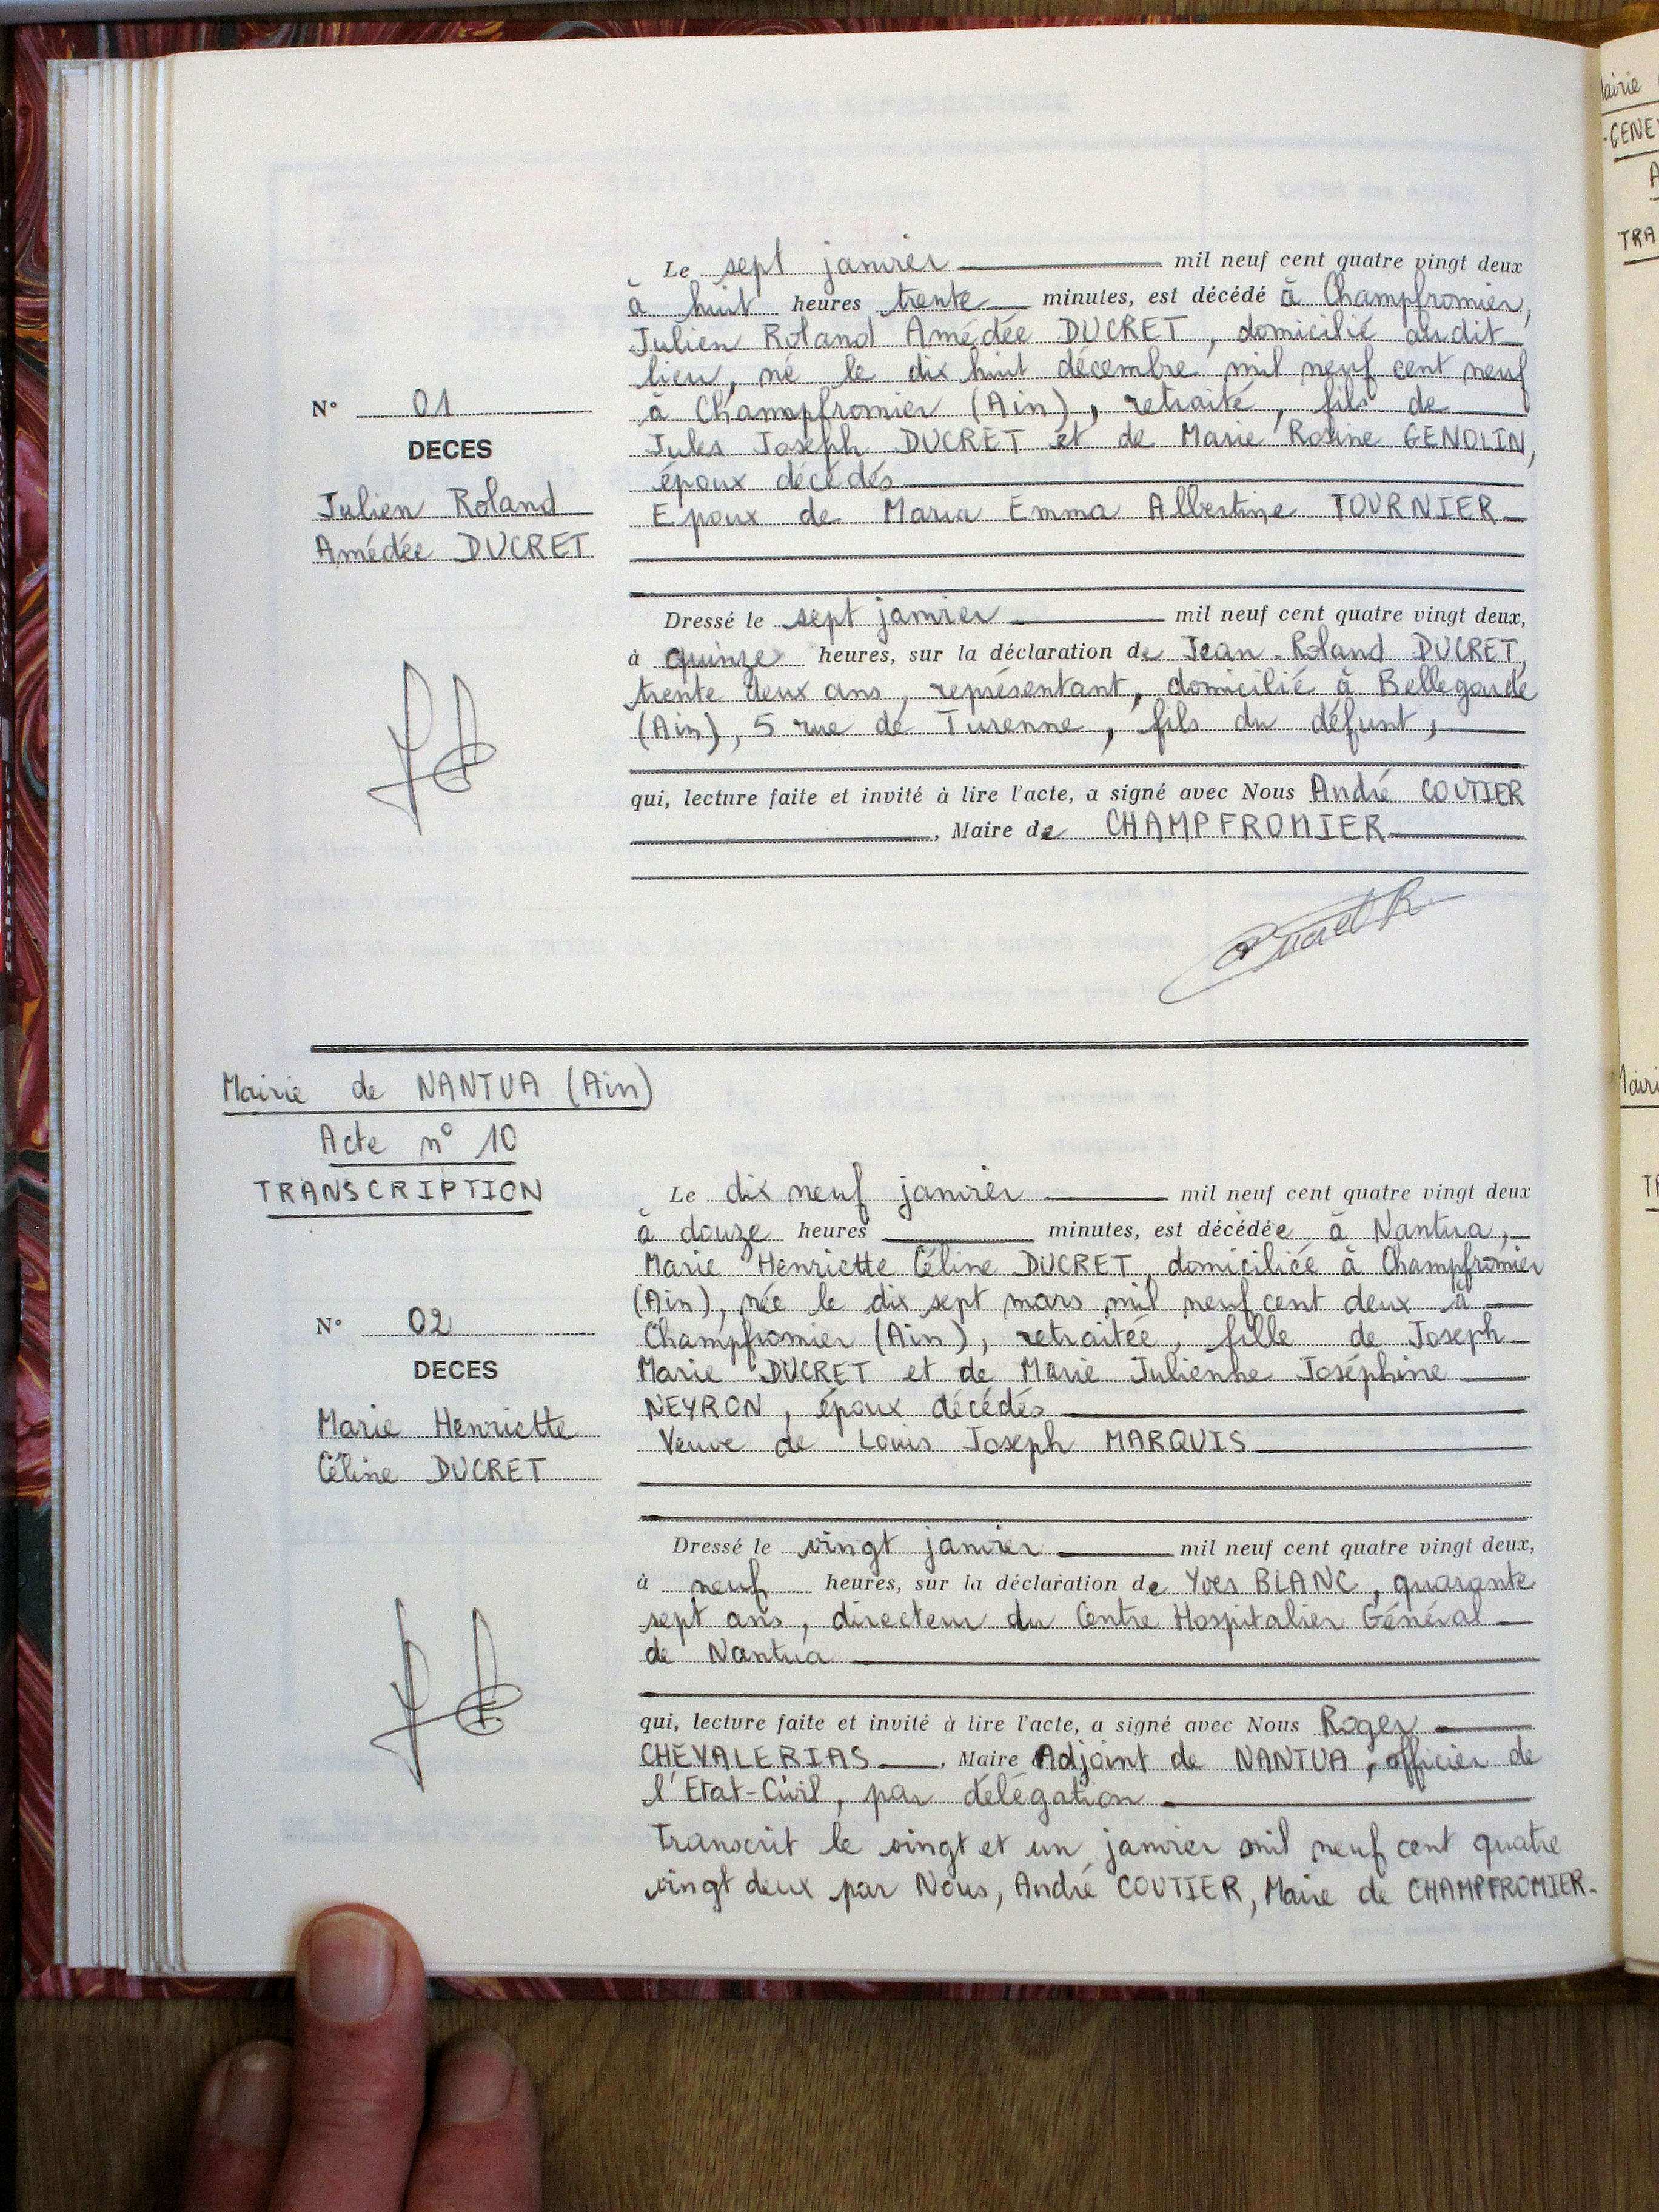 Le sept janvier mil neuf cent quatre vingt deux
à huit heures trente minutes, est décédé à Champfromier,
Julien Roland Amédée DUCRET, domicilié audit
lieu, né le dix huit décembre mil neuf cent neuf
N° 01
à Champfromier (Ain), retraité, fils de
DECES
Jules Joseph DUCRET et de Marie Rosine GENOLIN,
époux décédés
Julien Roland
Epoux de Maria Emma Albertine TOURNIER
Amédée DUCRET
Dressé le sept janvier mil neuf cent quatre vingt deux,
à quinze heures, sur la déclaration de Jean-Roland DUCRET,
trente deux ans, représentant, domicilié à Bellegarde
(Ain), 5 rue de Turenne, fils du défunt,
qui, lecture faite et invité à lire l'acte, a signé avec Nous André COUTIER
, Maire de CHAMPFROMIER
Ducret R
Mairie de NANTUA (Ain)
Acte n° 10
TRANSCRIPTION
Le dix neuf janvier mil neuf cent quatre vingt deux
à douze heures minutes, est décédée à Nantua,
Marie Henriette Céline DUCRET, domiciliée à Champfromier
(Ain), née le dix sept mars mil neuf cent deux à
N° 02
Champfromier (Ain), retraitée, fille de Joseph
DECES
Marie DUCRET et de Marie Julienne Joséphine
NEYRON, époux décédés
Marie Henriette
Veuve de Louis Joseph MARQUIS
Céline DUCRET
Dressé le vingt janvier mil neuf cent quatre vingt deux,
à neuf heures, sur la déclaration de Yves BLANC, quarante
sept ans, directeur du Centre Hospitalier Général
de Nantua
qui, lecture faite et invité à lire l'acte, a signé avec Nous Roger
CHEVALERIAS, Maire Adjoint de NANTUA, officier de
l'Etat-Civil, par délégation
Transcrit le vingt et un janvier mil neuf cent quatre
vingt deux par Nous, André COUTIER, Maire de CHAMPFROMIER.